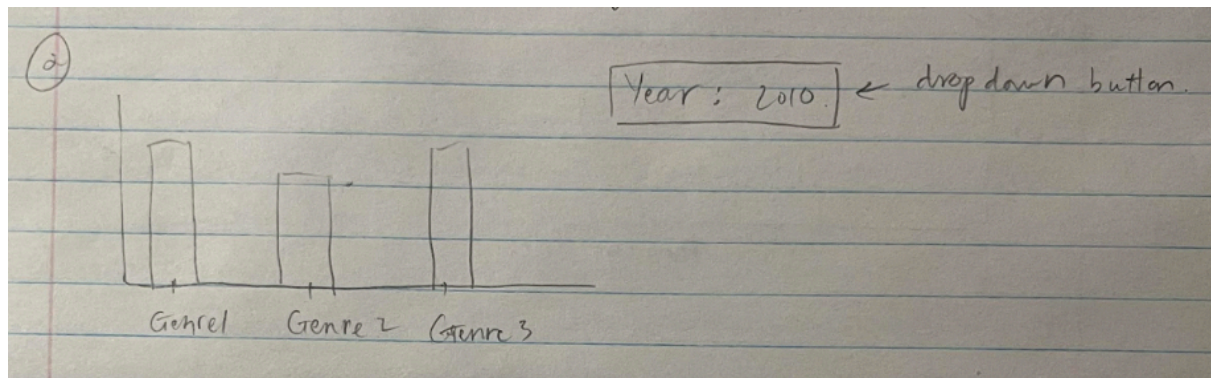 2
Year: 2010. ← dropdown button.
Genre1 Genre 2 Genre 3